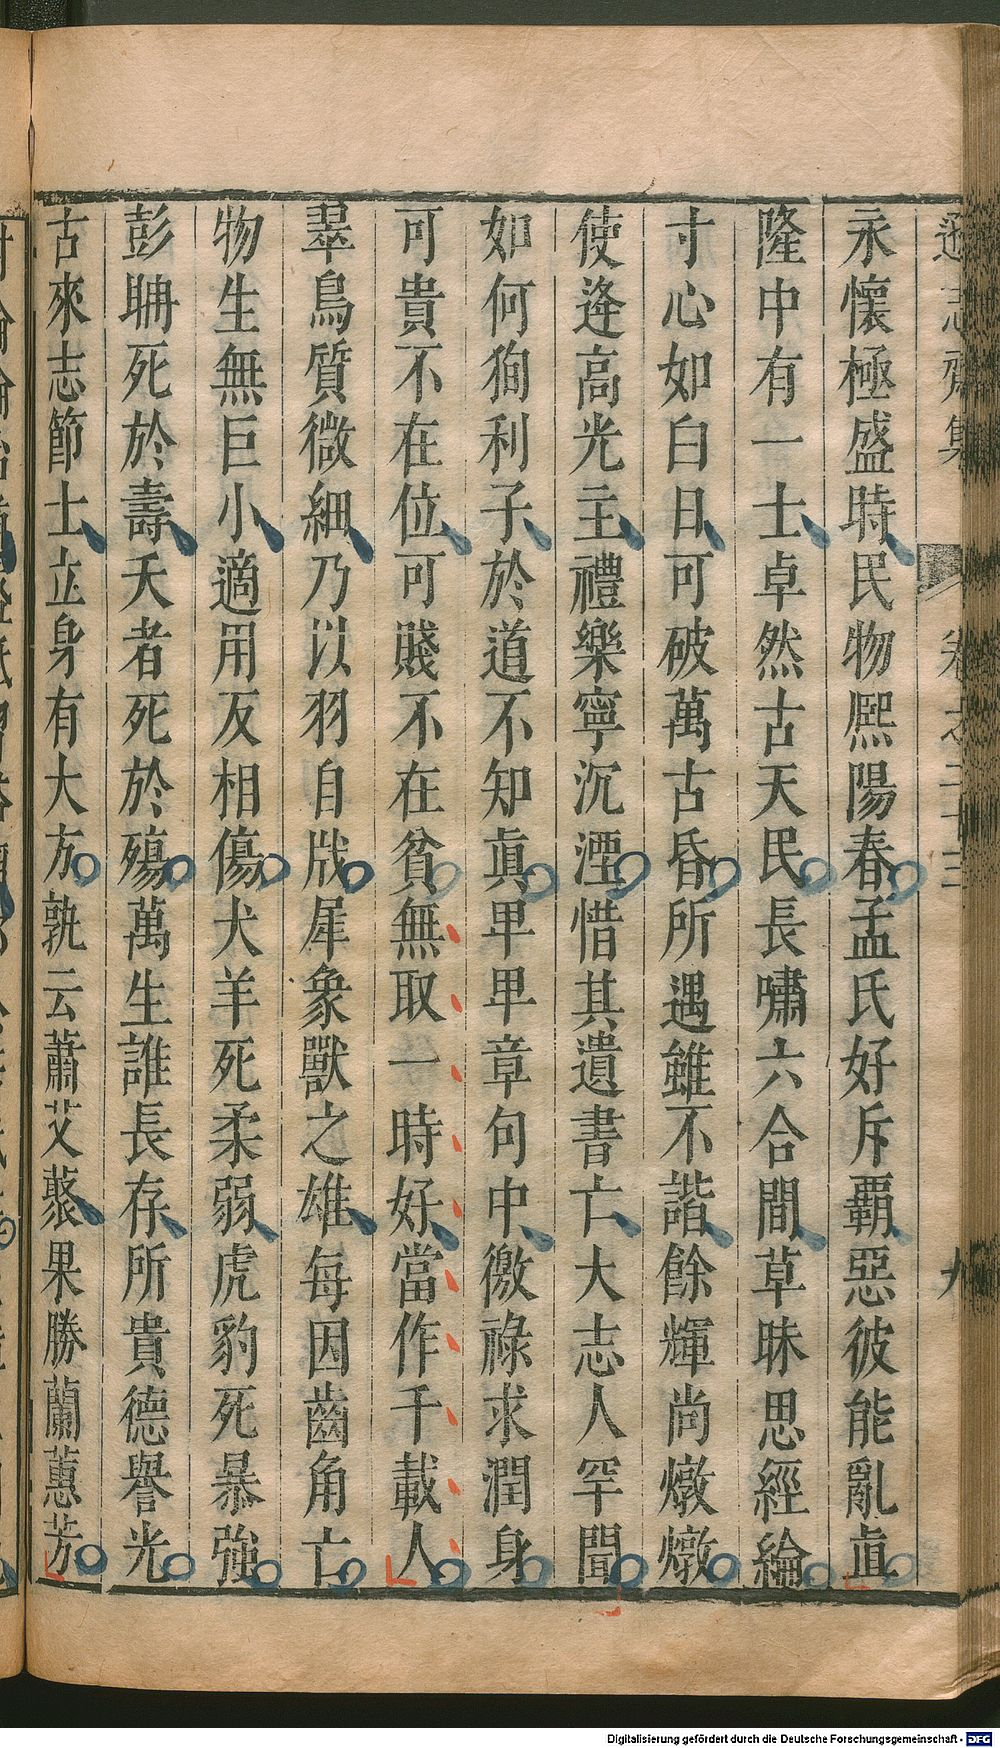 遜志齋集 卷之二十三 九
永懷極盛時民物熈陽春孟氏好斥覇惡彼能亂眞
隆中有一士卓然古天民長嘯六合間草昧思經綸
寸心如白日可破萬古昏所遇雖不諧餘輝尚燉燉
使逄高光主禮樂寧沉湮惜其遺書亡大志人罕聞
如何狥利子於道不知眞卑卑章句中徼祿求潤身
可貴不在位可賤不在貧無取一時好當作千載人
翠鳥質微細乃以羽自戕犀象獸之雄每因齒角亡
物生無巨小適用反相傷犬羊死柔弱虎豹死暴強
彭聃死於壽夭者死於殤萬生誰長存所貴德譽光
古來志節士立身有大方孰云蕭艾藂果勝蘭蕙芳
Digitalisierung gefördert durch die Deutsche Forschungsgemeinschaft - DFG